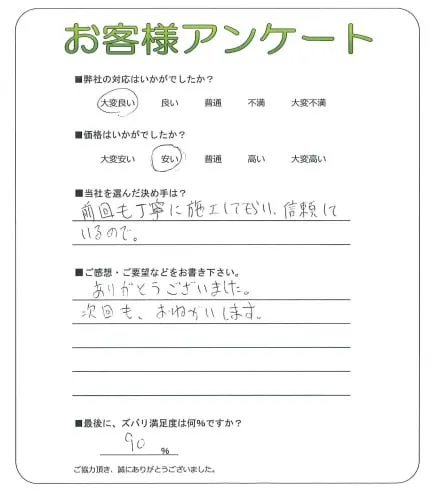 お客様アンケート
■弊社の対応はいかがでしたか?
大変良い 良い 普通 不満 大変不満
■価格はいかがでしたか?
大変安い 安い 普通 高い 大変高い
■当社を選んだ決め手は?
前回も丁寧に施工してもらい、信頼して
いるので。
■ご感想・ご要望などをお書き下さい。
ありがとうございました。
次回も、おねがいします。
■最後に、ズバリ満足度は何%ですか?
90 %
ご協力頂き、誠にありがとうございました。